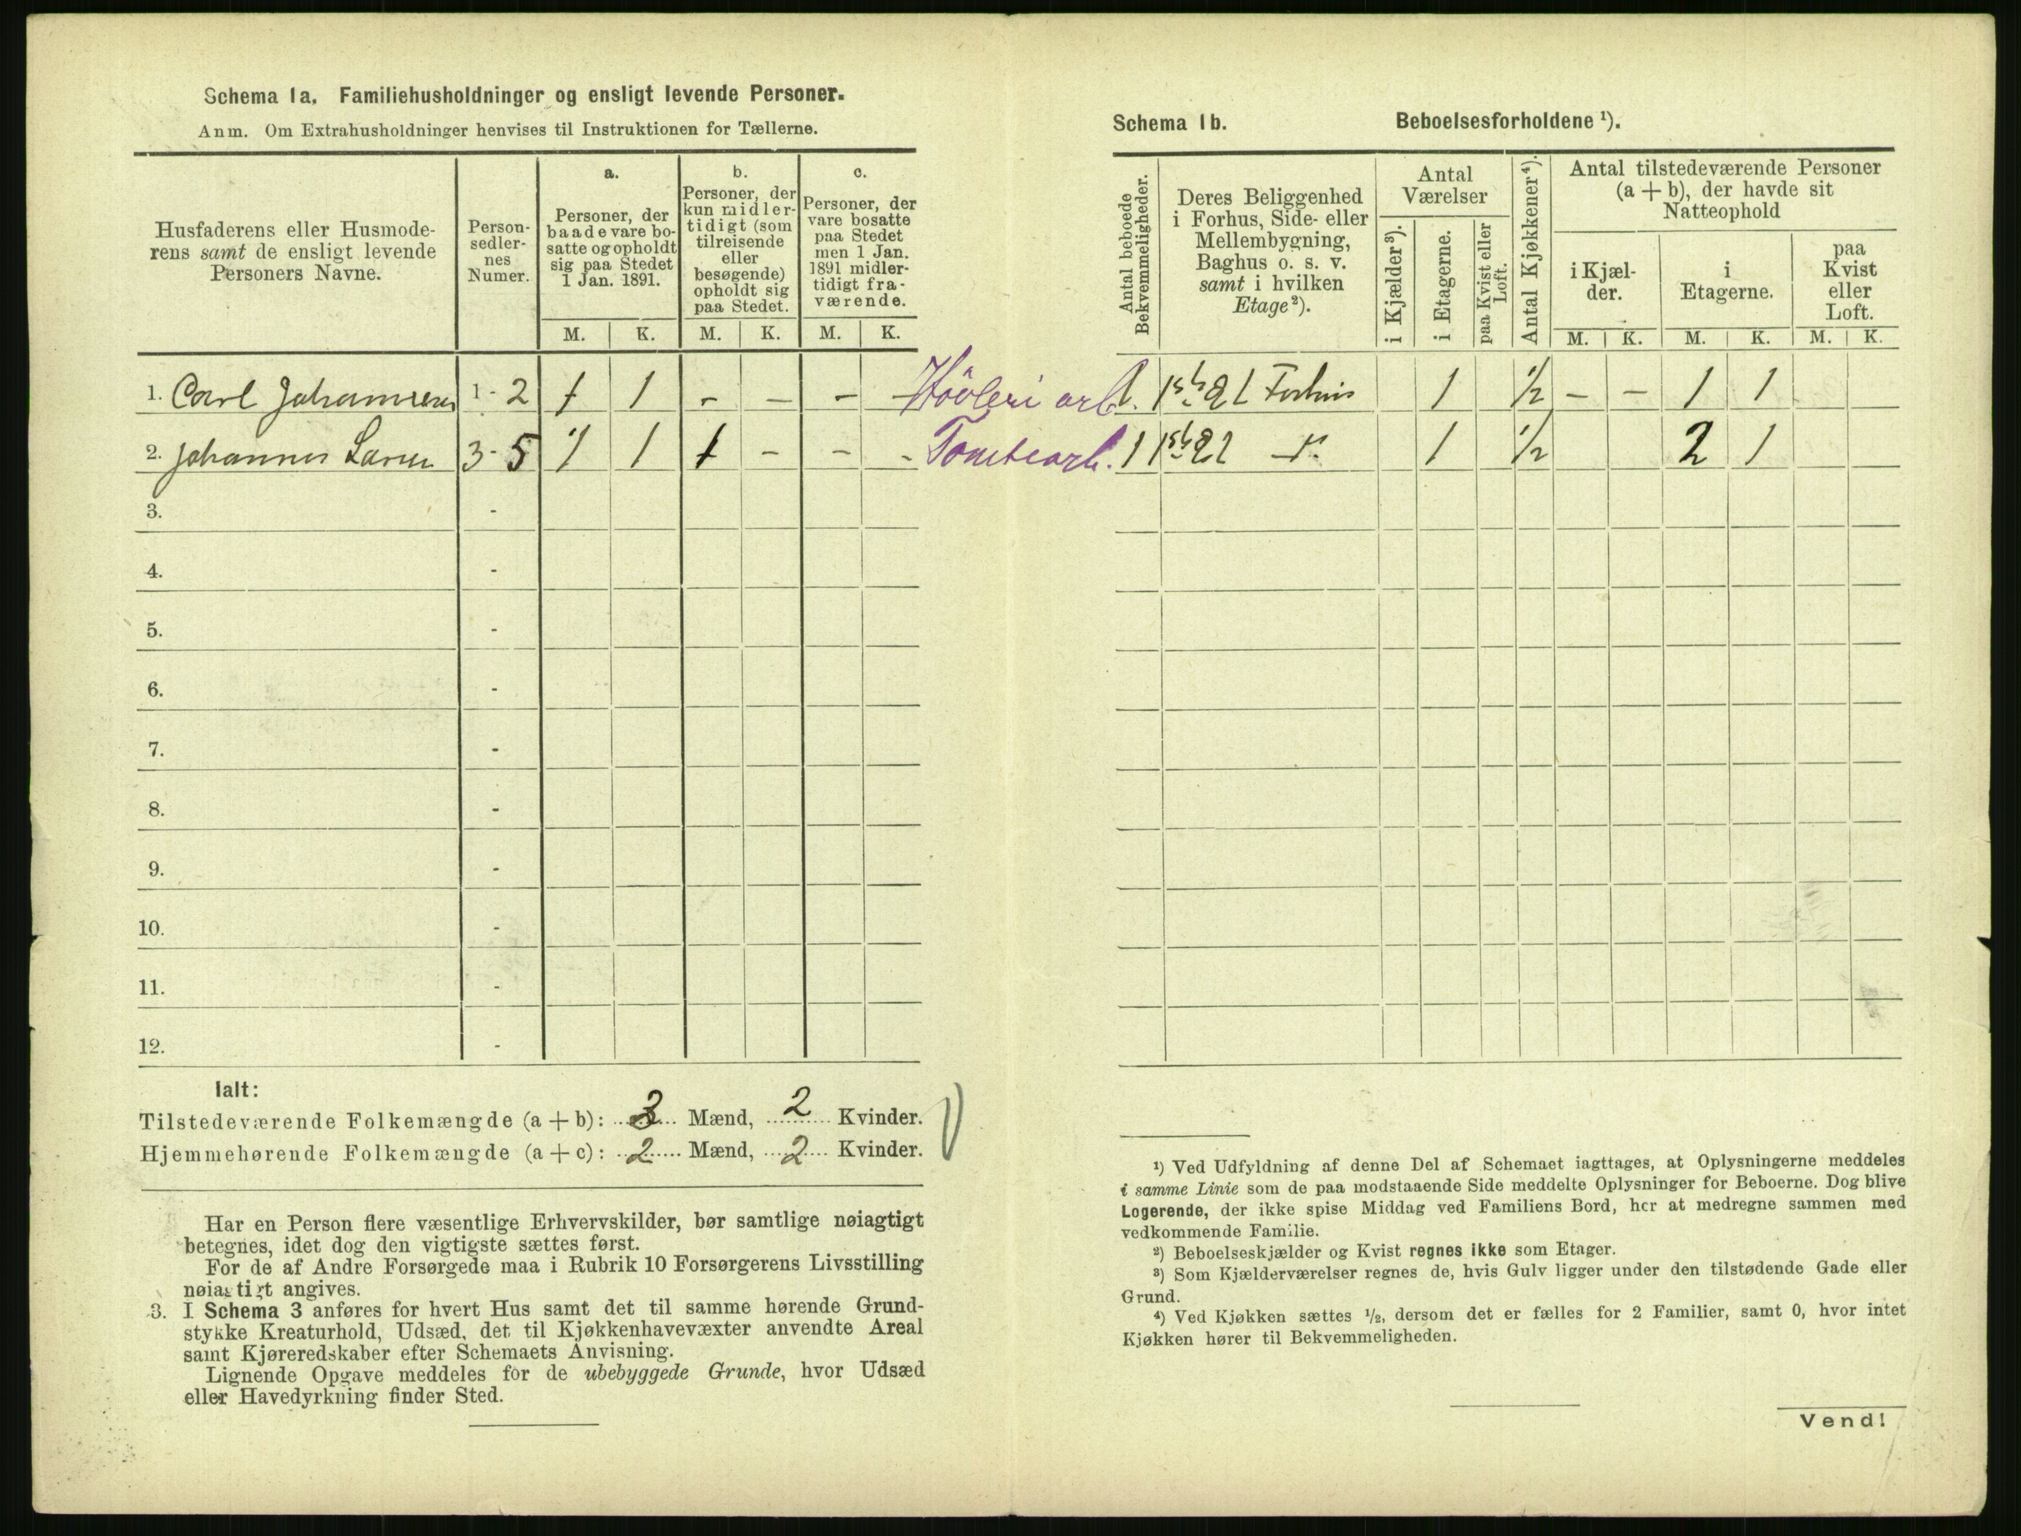 Schema 1a. Familiehusholdninger og ensligt levende Personer.
Anm. Om Extrahusholdninger henvises til Instruktionen for Tællerne.
Husfaderens eller Husmoderens samt de ensligt levende Personers Navne.
Personsedlernes Numer.
a. Personer, der baade vare bosatte og opholdt sig paa Stedet 1 Jan. 1891.
b. Personer, der kun midlertidigt (som tilreisende eller besøgende) opholdt sig paa Stedet.
c. Personer, der vare bosatte paa Stedet men 1 Jan. 1891 midlertidigt fraværende.
M. K. M. K. M. K.
1. Carl Johannesen 1 - 2 1 1 - - - -
2. Johannes Larsen 3 - 5 1 1 1 - - -
3. -
4. -
5. -
6. -
7. -
8. -
9. -
10. -
11. -
12. -
Ialt:
Tilstedeværende Folkemængde (a + b): 3 Mænd, 2 Kvinder.
Hjemmehørende Folkemængde (a + c): 2 Mænd, 2 Kvinder.
Har en Person flere væsentlige Erhvervskilder, bør samtlige nøiagtigt
betegnes, idet dog den vigtigste sættes først.
For de af Andre Forsørgede maa i Rubrik 10 Forsørgerens Livsstilling
nøiagtigt angives.
3. I Schema 3 anføres for hvert Hus samt det til samme hørende Grund-
stykke Kreaturhold, Udsæd, det til Kjøkkenhavevæxter anvendte Areal
samt Kjøreredskaber efter Schemaets Anvisning.
Lignende Opgave meddeles for de ubebyggede Grunde, hvor Udsæd
eller Havedyrkning finder Sted.
Schema 1b. Beboelsesforholdene ¹).
Antal beboede Bekvemmeligheder.
Deres Beliggenhed i Forhus, Side- eller Mellembygning, Baghus o. s. v. samt i hvilken Etage²).
Antal Værelser
i Kjælder³).
i Etagerne.
paa Kvist eller Loft.
Antal Kjøkkener⁴).
Antal tilstedeværende Personer (a + b), der havde sit Natteophold
i Kjælder.
i Etagerne.
paa Kvist eller Loft.
M. K. M. K. M. K.
Høvleri arb. 1 Forhus 1 ½ - - 1 1
Tomtearb. 1 1 ½ 2 1
¹) Ved Udfyldning af denne Del af Schemaet iagttages, at Oplysningerne meddeles
i samme Linie som de paa modstaaende Side meddelte Oplysninger for Beboerne. Dog blive
Logerende, der ikke spise Middag ved Familiens Bord, her at medregne sammen med
vedkommende Familie.
²) Beboelseskjælder og Kvist regnes ikke som Etager.
³) Som Kjælderværelser regnes de, hvis Gulv ligger under den tilstødende Gade eller
Grund.
⁴) Ved Kjøkken sættes ½, dersom det er fælles for 2 Familier, samt 0, hvor intet
Kjøkken hører til Bekvemmeligheden.
Vend!